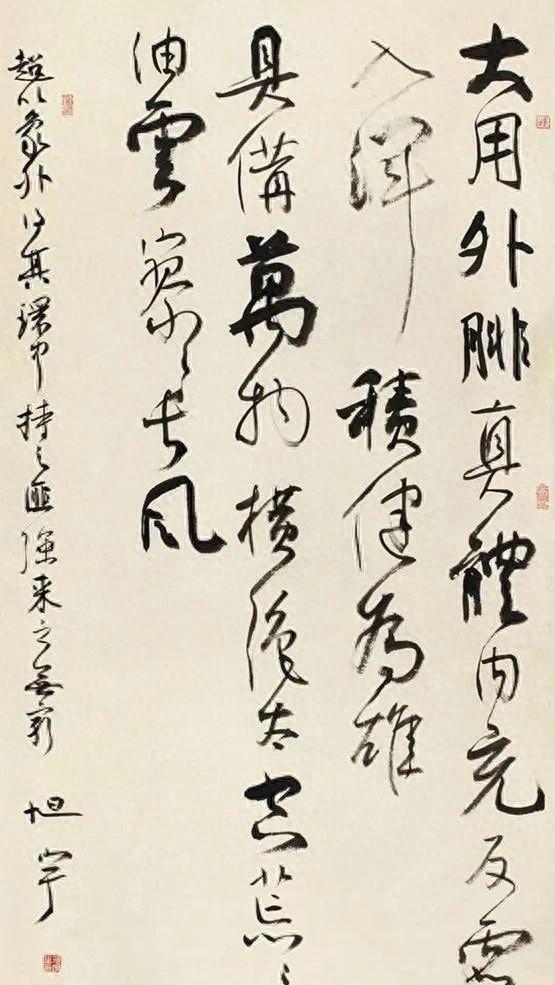 大用外腓真體内充反虛
入渾積健為雄
具備萬物橫絶太空荒〻
油雲寥〻長風
超以象外得其環中持之匪強来之無窮 旭宇